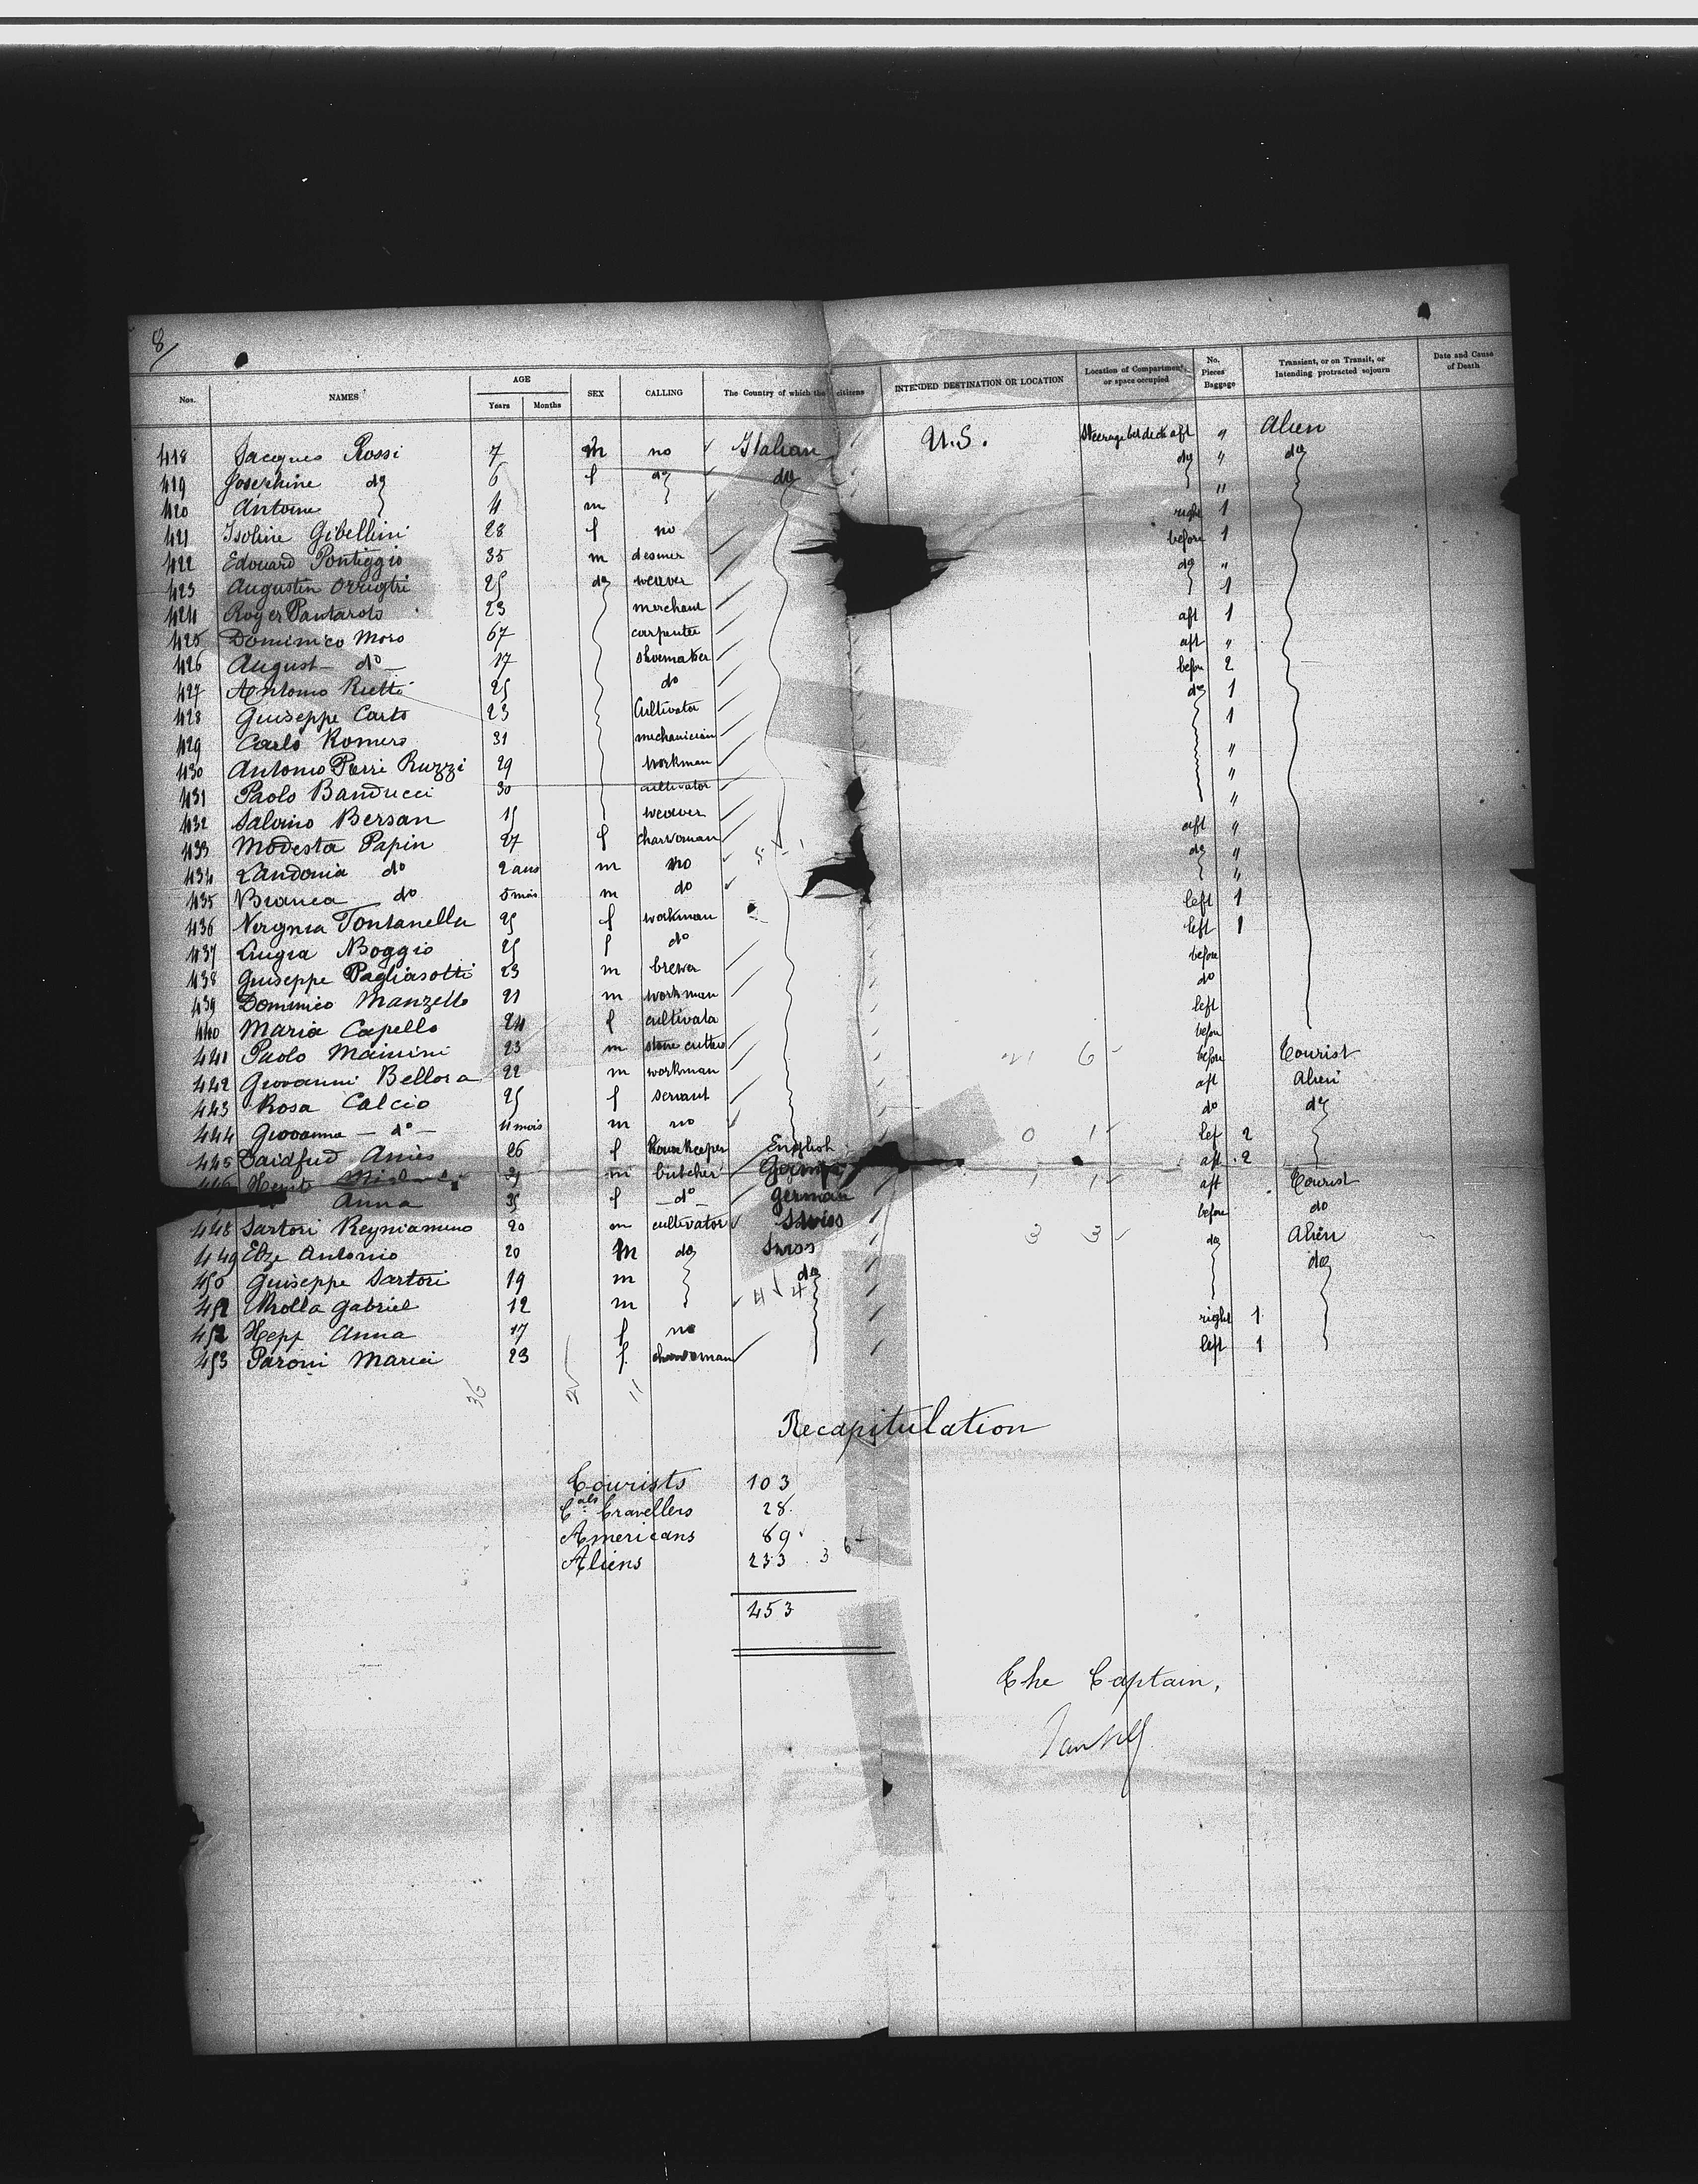 8/
Nos. NAMES AGE Years Months SEX CALLING The Country of which the citizens INTENDED DESTINATION OR LOCATION Location of Compartment, or space occupied No. Pieces Baggage Transient, or on Transit, or Intending protracted sojourn Date and Cause of Death
418 Jacques Rossi 7 m no Italian U.S. Steerage bet deck aft " Alien
419 Josephine do 6 f do do do " do
420 Antoine 4 m "
421 Isoline Gibellini 28 f no right 1
422 Edouard Pontiggio 35 m before 1
423 Augustin 25 do weaver do "
424 Roger Pantarolo 23 merchant 1
425 Dominico Moro 67 carpenter aft 1
426 August do 17 shoemaker aft "
427 Antonio Rietti 25 do before 2
428 Guiseppe Carlo 23 Cultivator do 1
429 Carlo Romero 31 mechanician 1
430 Antonio Perri Ruzzi 29 workman "
431 Paolo Banducci 30 cultivator "
432 Salvino Bersan 15 weaver "
433 Modesta Papin 27 f charwoman aft "
434 Landonia do 2 ans m no do "
435 Bianca do 5 mois m do "
436 Virginia Fontanella 25 f workman left 1
437 Luigia Boggio 25 f do left 1
438 Guiseppe Pagliasotti 23 m brewer before
439 Dominico Manzetto 21 m workman do
440 Maria Capello 24 f cultivata left
441 Paolo Mainini 23 m stone cutter before
442 Giovanni Bellora 22 m workman 6 before Tourist
443 Rosa Calcio 25 f servant aft Alien
444 Giovanna - do - 11 mois m no do do
445 Anies 26 f Housekeeper English 0 1 lef 2
m butcher German 1 1 aft 2
Anna 35 f - do - German aft Tourist
448 Sartori Reyniamino 20 m cultivator Swiss 3 3 before do
449 Etze Antonio 20 m do Swiss do Alien
450 Guiseppe Sartori 19 m do 4 4 do
451 Molla Gabriel 12 m
452 Hepp Anna 17 f no right 1
453 Paroni Maria 23 f. charwoman left 1
36 25 11
Recapitulation
Tourists 103
Cals Travellers 28
Americans 89
Aliens 233 3 6
453
The Captain,